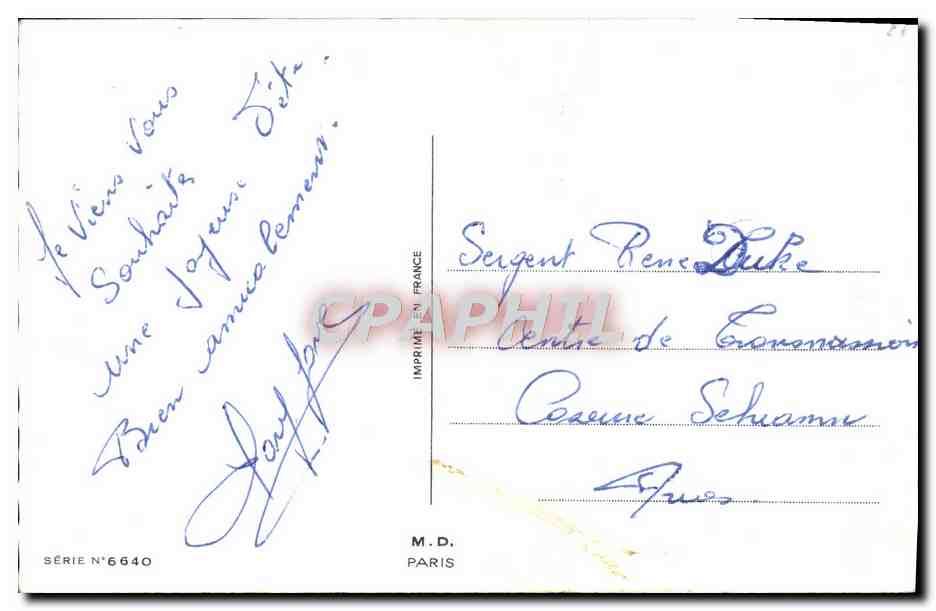 Je Viens Vous
Souhaiter
une Joyeuse Fête.
Bien amicalement.
IMPRIMÉ EN FRANCE
Sergent Rene Duke
Centre de Transmission
Caserne Schramm
Arras.
CPAPHIL
SÉRIE N°6640
M.D.
PARIS